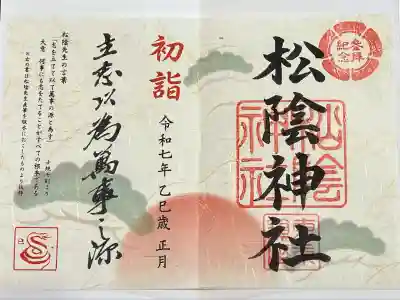 参拝
紀念
松陰神社
松陰神社
初詣
令和七年 乙巳歳 正月
立志以為萬事之源
松陰先生の言葉
「志を立てて以て萬事の源と為す」
士規七則より
大意 何事にも志をたてることがすべての根本である
巳